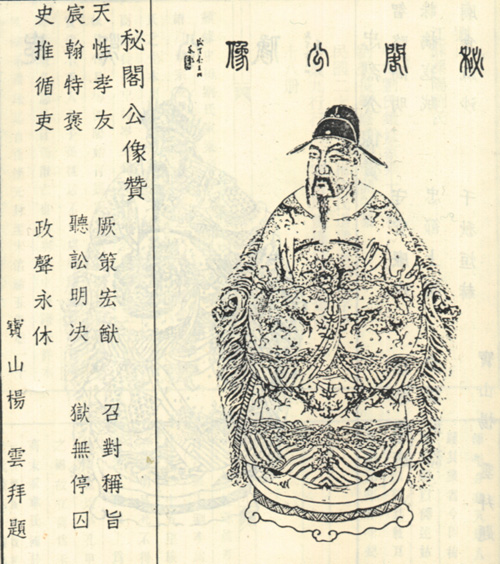 秘閣公像
秘閣公像贊
天性孝友 厥策宏猷 召對稱旨
宸翰特褒 聽訟明决 獄無停囚
史推循吏 政聲永休
寶山楊 雲拜題